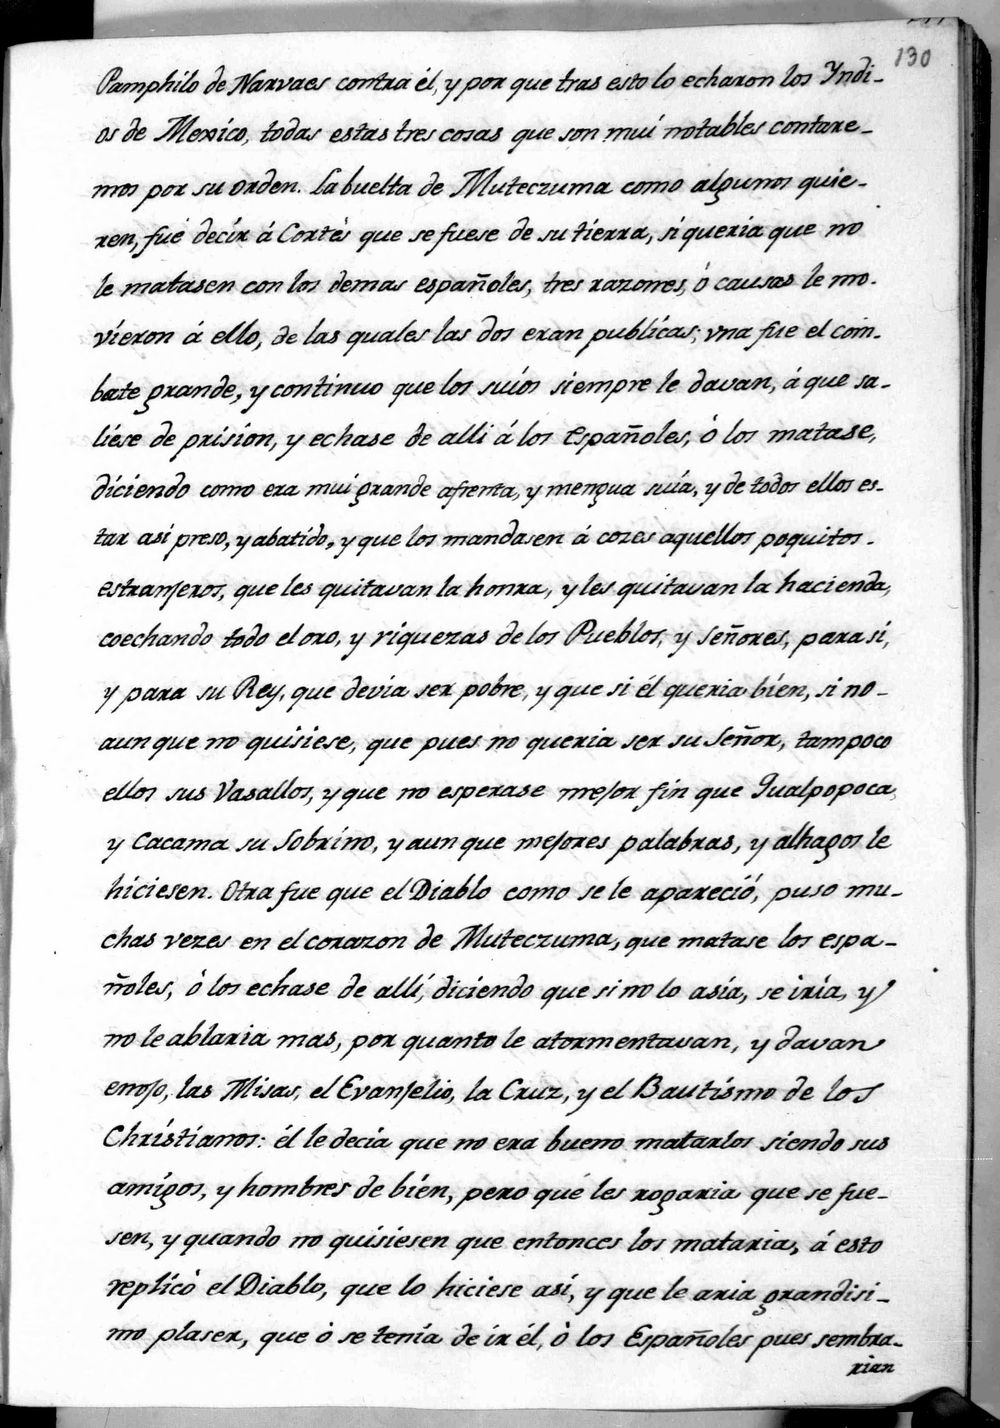 130
Pamphilo de Narvaes contra él, y por que tras esto lo echaron los Yndi-
os de Mexico, todas estas tres cosas que son mui notables contare-
mos por su orden. La buelta de Muteczuma como algunos quie-
ren, fué decír á Cortés que se fuese de su tierra, si queria que no
le matasen con los demas españoles, tres razones, ó causas le mo-
vieron á ello, de las quales las dos eran publícas; vna fue el com-
bate grande, y continuo que los suíos siempre le davan, á que sa-
liese de prision, y echase de alli á los Españoles, ò los matase,
diciendo como era mui grande afrenta, y mengua suía, y de todos ellos es-
tar así preso, y abatido, y que los mandasen á cozes aquellos poquitos
estranjeros, que les quitavan la honra, y les quitavan la hacienda,
coechando todo el oro, y riquezas de los Pueblos, y Señores, para si,
y para su Rey, que devia ser pobre, y que si él queria bien, si no-
aun que no quisiese, que pues no queria ser su Señor, tampoco
ellos sus Vasallos, y que no esperase mejor fin que Qualpopoca,
y Cacama su Sobrino, y aun que mejores palabras, y alhagos le
hiciesen. Otra fue que el Diablo como se le apareció, puso mu-
chas vezes en el corazon de Muteczuma, que matase los espa-
ñoles, ò los echase de allí, diciendo que si no lo asía, se iría, y
no le ablaria mas, por quanto le atormentavan, y davan
enojo, las Misas, el Evanjelio, la Cruz, y el Bautismo de los
Christianos: él le decia que no era bueno matarlos siendo sus
amigos, y hombres de bien, pero que les rogaria que se fue-
sen, y quando no quisiesen que entonces los mataria, á esto
replicò el Diablo, que lo hiciese así, y que le aria grandisi-
mo plaser, que ò se tenía de ír él, ò los Españoles pues sembra-
rian